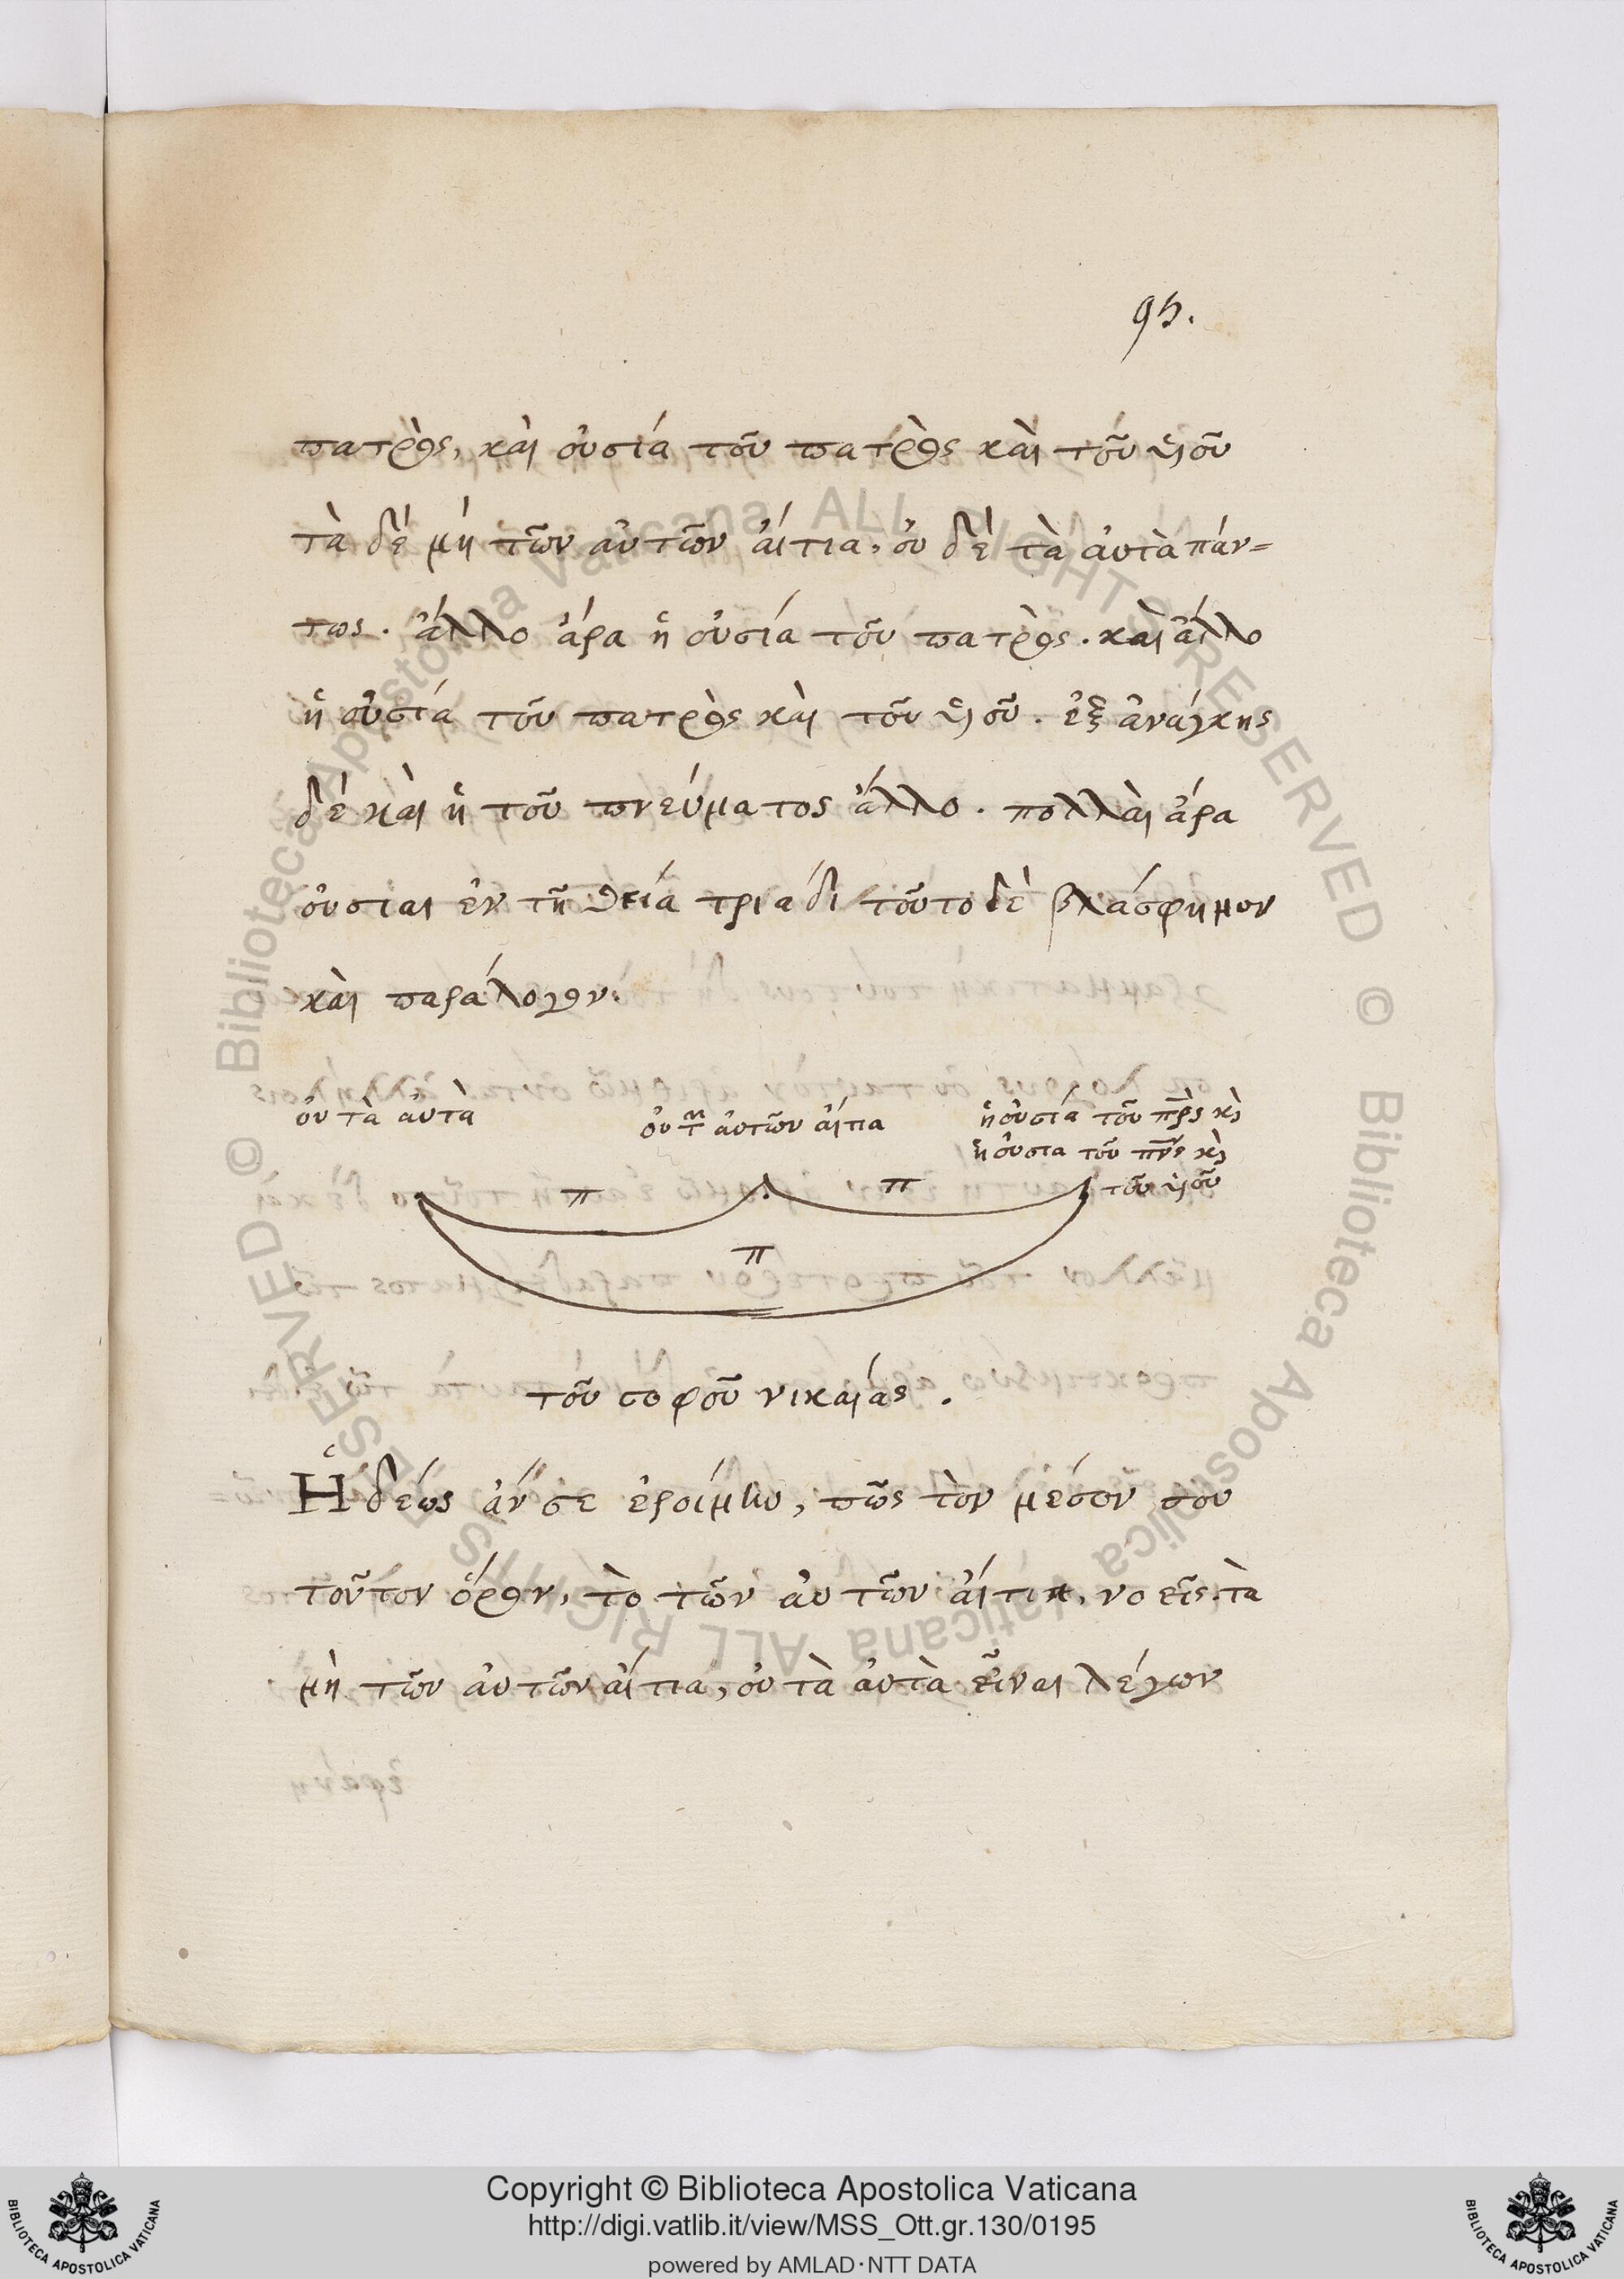 95.
πατρὸς, καὶ οὐσία τοῦ πατρὸς καὶ τοῦ ὑιοῦ
τὰ δέ μή τῶν αὐτῶν ἀίτια, ὀυ δὲ τὰ ἀυτὰ πάν=
τως. ἄλλο ἄρα ἡ οὐσία τοῦ πατρὸς. καὶ ἄλλο
ἡ οὐσία τοῦ πατρὸς καὶ τοῦ ὑιοῦ. ἐξ ἀνάγκης
δέ καὶ ἡ τοῦ πνεύματος ἄλλο. πολλὰι ἄρα
οὐσίαι ἐν τῆ θεία τριάδι τοῦτο δὲ βλάσφημον
καὶ παράλογον:
ὀυ τὰ ἀυτὰ
ὀυ τ͂ ἀυτῶν ἀίτια
ἡ οὐσία τοῦ πρ̅ὸς κὶ
ἡ ὀυσια τοῦ πρ̅ς κὶ
τοῦ ὑιοῦ
π
π
π
τοῦ σοφοῦ νικαίας.
Ἡδέως ἄν σε ἐροίμην, πῶς τὸν μέσον σου
τοῦτον ὅρον, τὸ τῶν ἀυτῶν ἀίτια, νοεῖς. τὰ
μὴ τῶν ἀυτῶν ἀίτια, ὀυ τὰ ἀυτὰ εἶναι λέγων
Copyright © Biblioteca Apostolica Vaticana
http://digi.vatlib.it/view/MSS_Ott.gr.130/0195
powered by AMLAD·NTT DATA
BIBLIOTECA APOSTOLICA VATICANA
BIBLIOTECA APOSTOLICA VATICANA
© Biblioteca Apostolica Vaticana ALL RIGHTS RESERVED
© Biblioteca Apostolica Vaticana ALL RIGHTS RESERVED